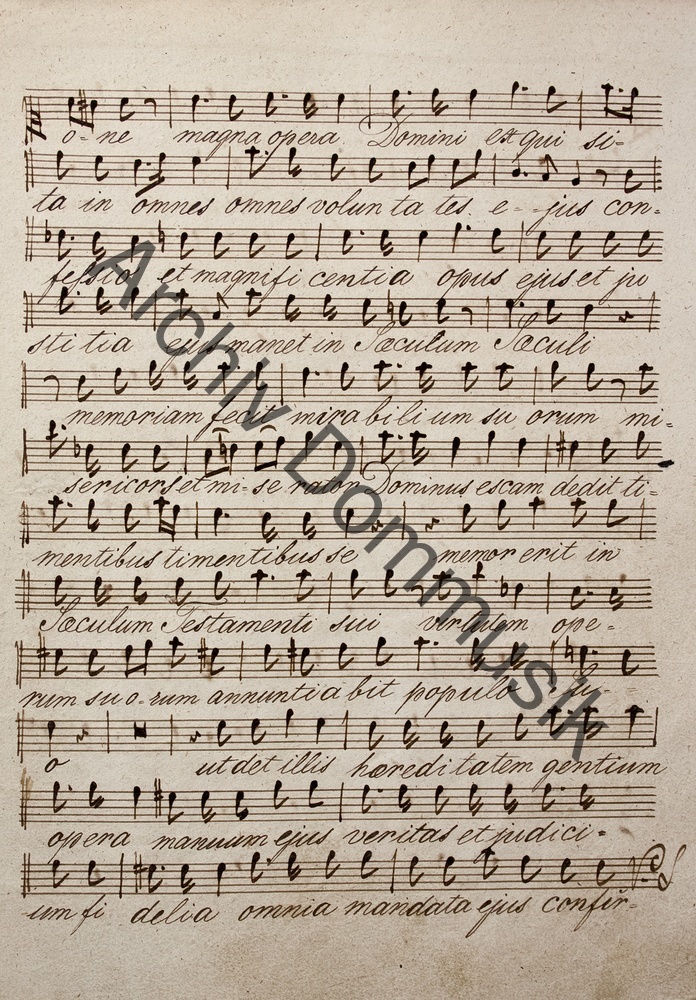 o- ne magna opera Domini exqui si-
ta in omnes omnes volun ta tes. e- -jus con-
fessio et magnifi centia opus ejus et ju
sti tia ejus manet in Sæculum Sæculi
memoriam fecit mirabili um su orum mi-
sericors et mi- se rator Dominus escam dedit ti-
mentibus timentibus se memor erit in
Sæculum Testamenti sui virtutem ope-
rum su o- rum annuntia bit populo su-
o ut det illis hæredi tatem gentium
opera manuum ejus veritas et judici-
um fi delia omnia mandata ejus confir-
Archiv Dommusik